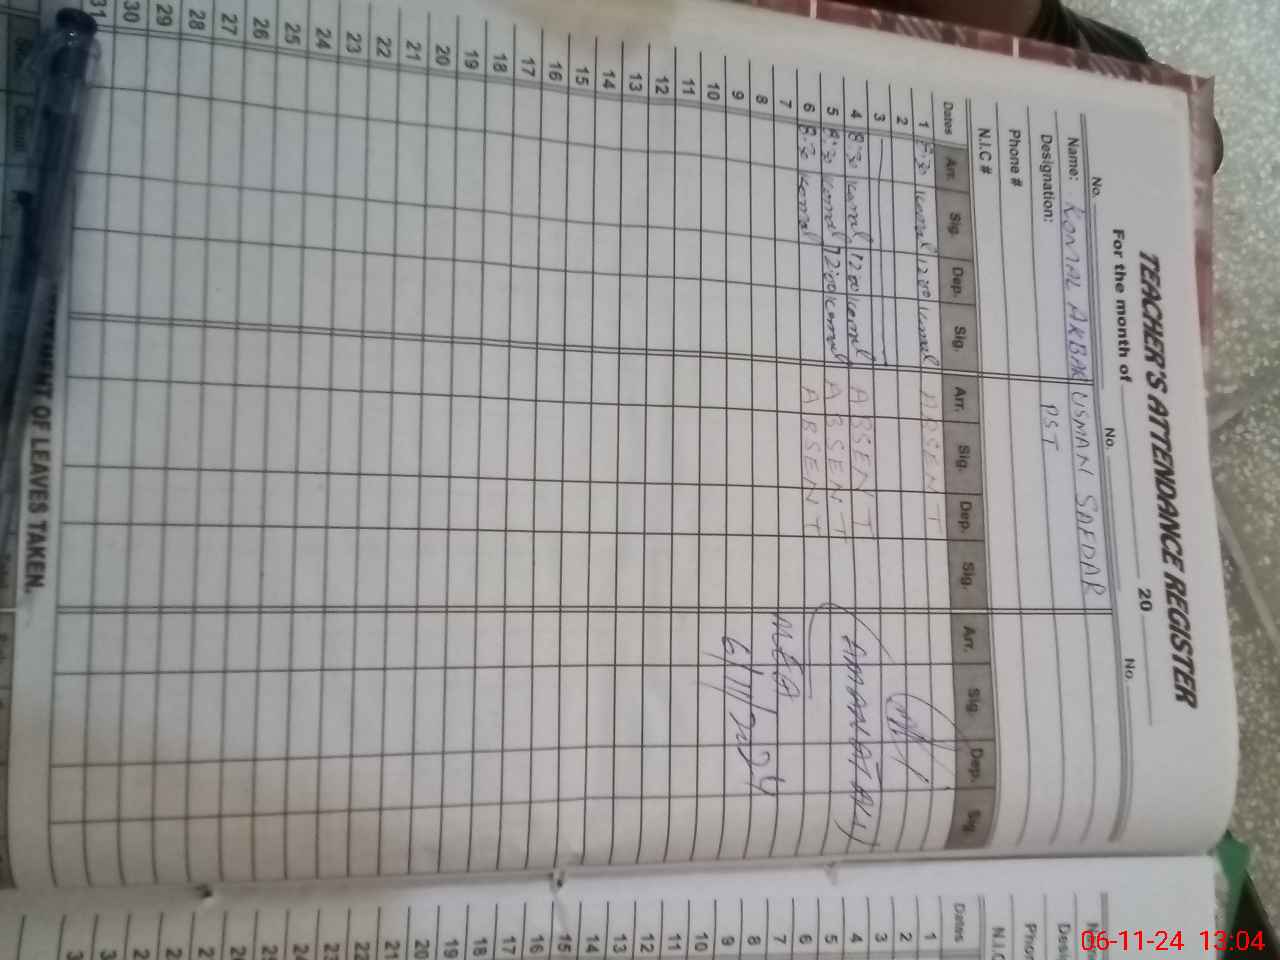 TEACHER'S ATTENDANCE REGISTER
For the month of 20
No. No. No.
Name: KOMAL AKBAR USMAN SAFDAR
Designation: PST
Phone #
N.I.C #
Dates Arr. Sig. Dep. Sig. Arr. Sig. Dep. Sig. Arr. Sig. Dep. Sig.
1 8:30 komal 12:00 komal ABSENT
2
3
4 8:30 komal 12:00 komal ABSENT (AMANAT ALI)
5 8:30 komal 12:00 komal ABSENT
6 8:30 komal ABSENT
7 MEA
8 6/11/2024
9
10
11
12
13
14
15
16
17
18
19
20
21
22
23
24
25
26
27
28
29
30
31
OF LEAVES TAKEN.
Dates
1
2
3
4
5
6
7
8
9
10
11
12
13
14
15
16
17
18
19
20
21
N.I.C
Phon
06-11-24 13:04